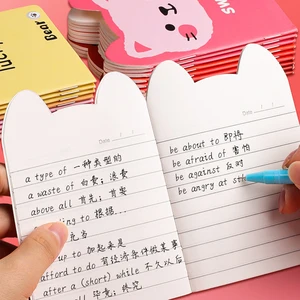 Bear
lucky
SWE
Date / /
a type of 一种类型的
a waste of 白费；浪费
above all 首先；首要
to 根据…
充当
up to 加起来是
afford to do 有经济条件做某事
after a (short) while 不久以后
all 毕竟；终究
Date / /
be about to 即将
be afraid of 害怕
be against 反对
be angry at sth